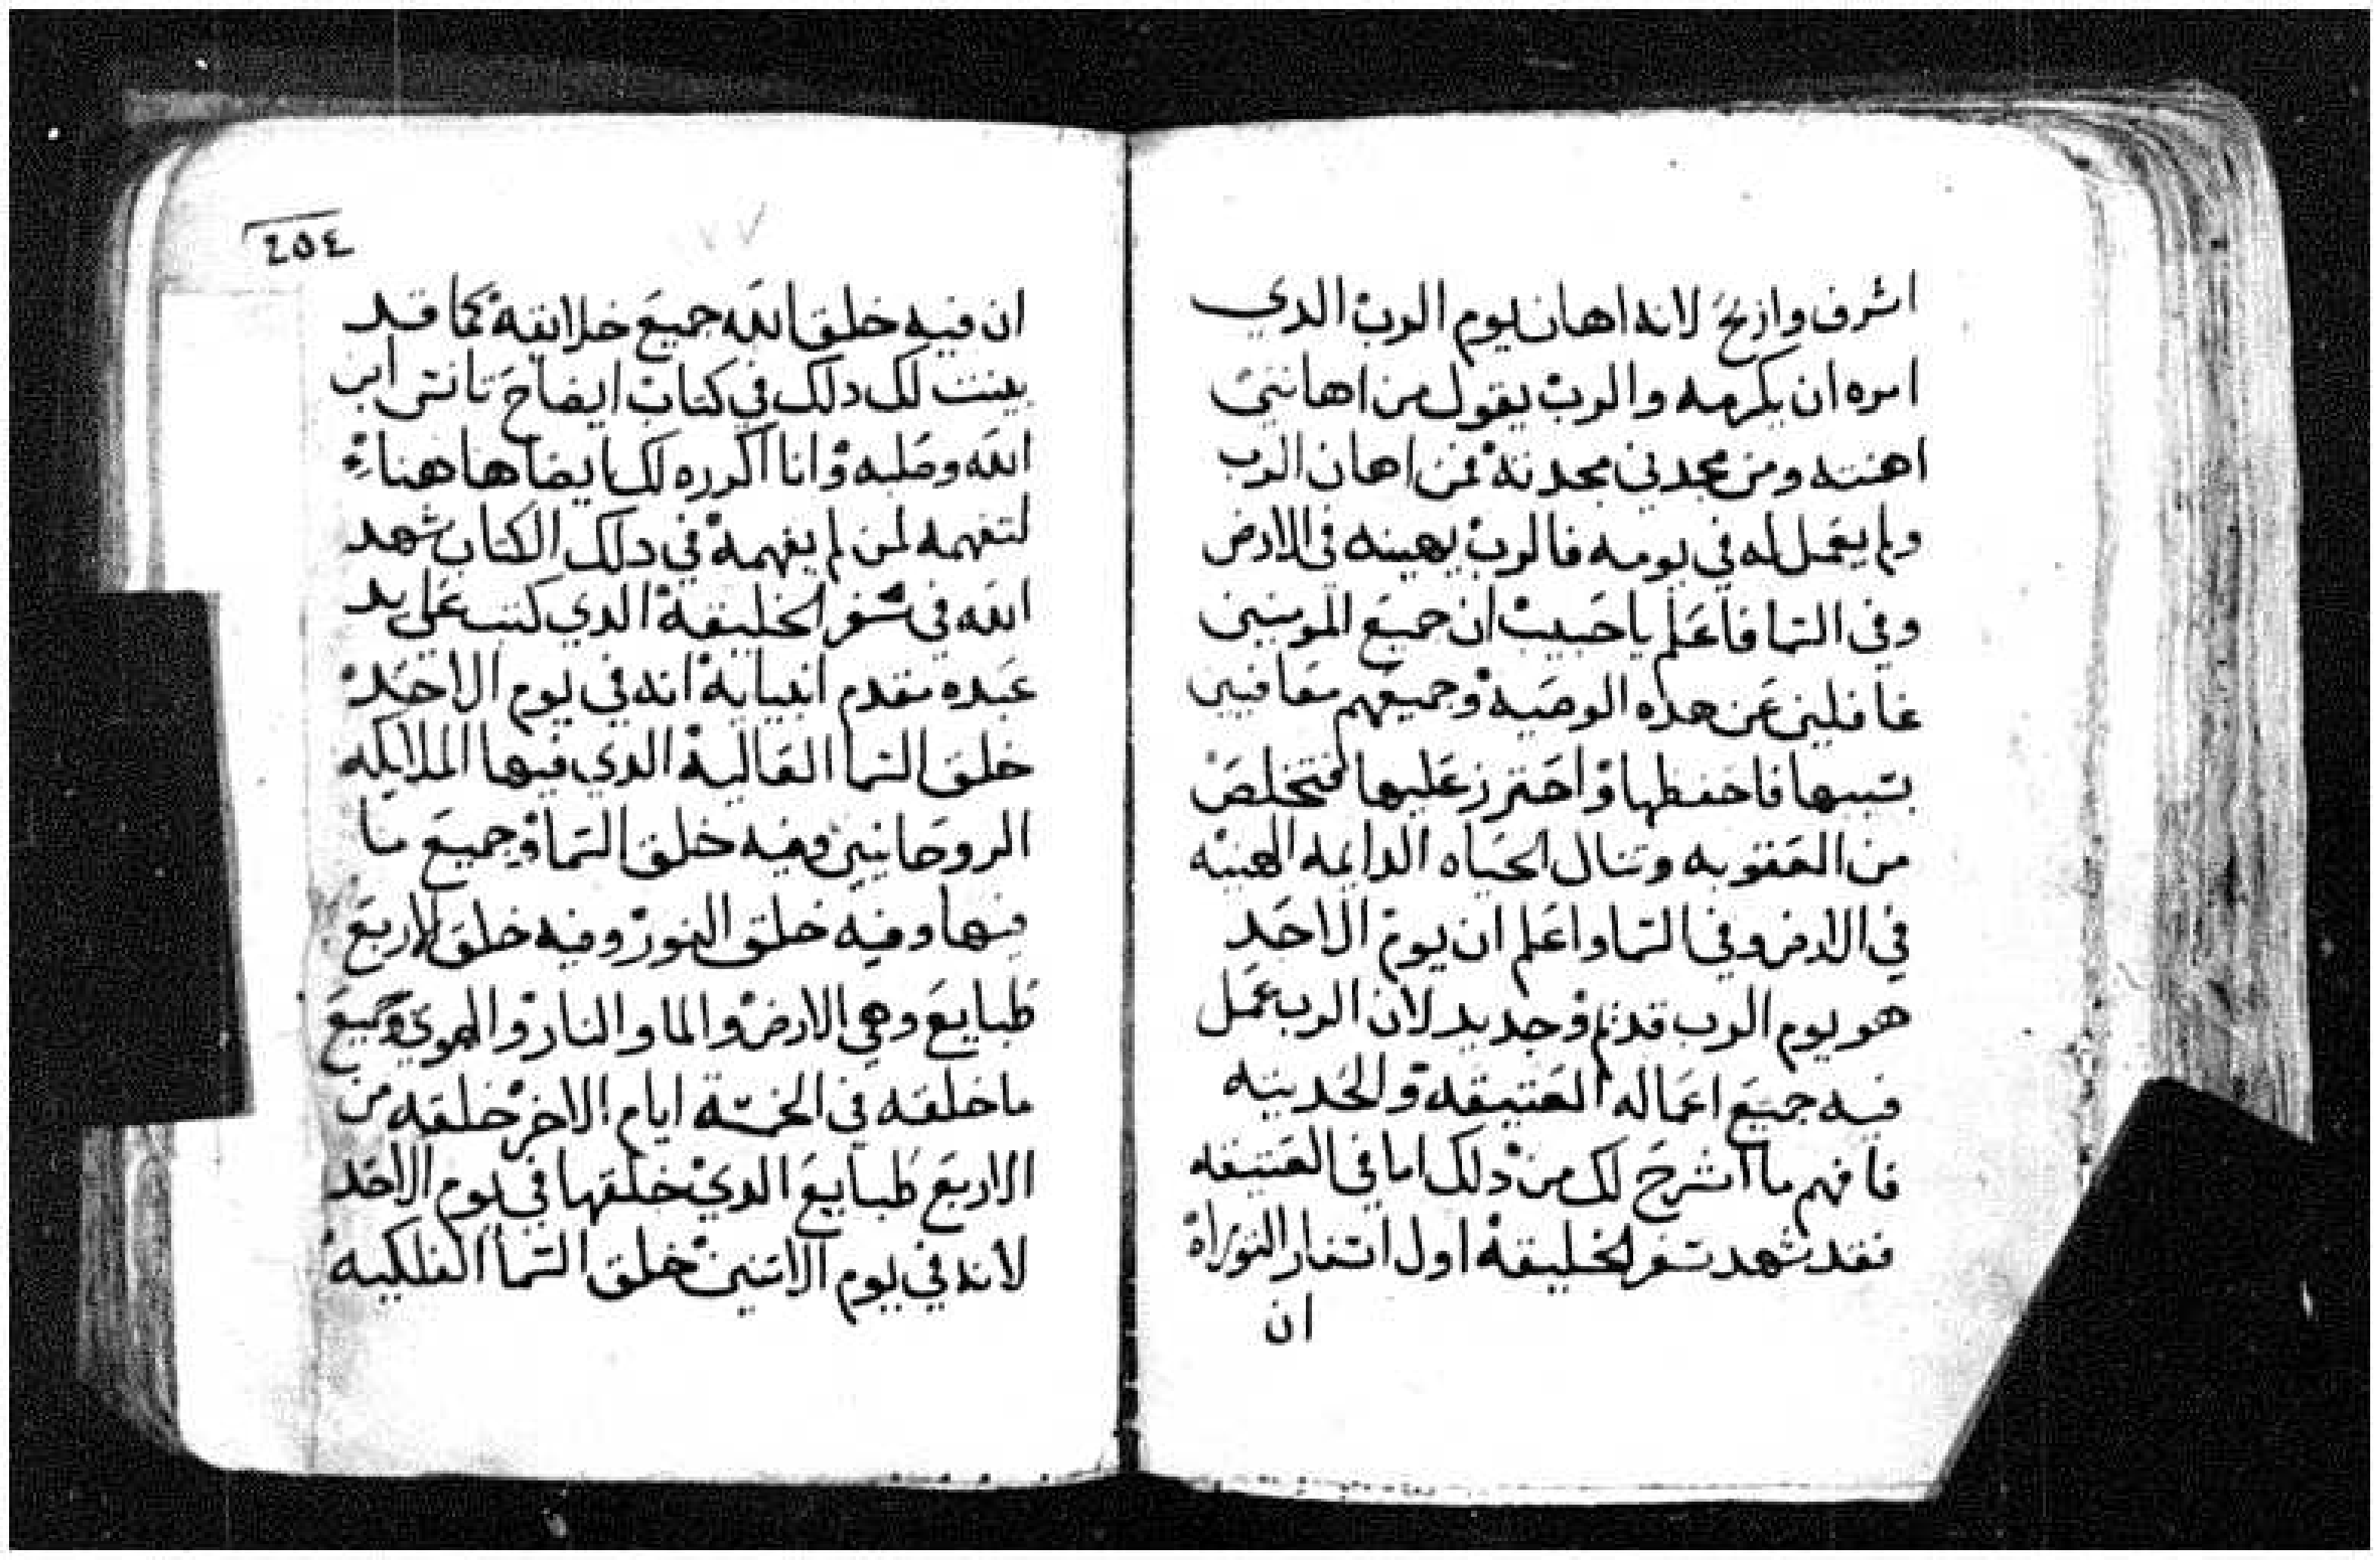 اشرف واربح لانه اهان يوم الرب الدي
امره ان يكرمه والرب يقول من اهانني
اهنته ومن مجدني مجدته فمن اهان الرب
ولم يعمل له في يومه فالرب يهينه في الارض
وفي السما فاعلم يا حبيب ان جميع المومنين
غافلين عن هده الوصيه وجميعهم معاقبين
بسببها فاحفظها واحترز عليها فتخلص
من العقوبه وتنال الحياه الدايمه الهنيه
في الارض وفي السما واعلم ان يوم الاحد
هو يوم الرب قديم وجديد لان الرب عمل
فيه جميع اعماله العتيقه والحديثه
فافهم ما اشرح لك من دلك اما في العتيقه
فقد شهد سفر الخليقة اول اسفار التوراة
ان
٢٥٤
ان فيه خلق الله جميع خلايقه كما قد
بينت لك دلك في كتاب ايضاح تانس ابن
الله وصلبه وانا اكرره لك ايضا هاهنا
لتفهمه لمن لم يفهمه في دلك الكتاب شهد
الله في سفر الخليقة الدي كتب على يد
عبده مقدم انبيايه انه في يوم الاحد
خلق السما العالية الدي فيها الملايكه
الروحانيين وفيه خلق السما وجميع ما
فيها وفيه خلق النور وفيه خلق الاربع
طبايع وهي الارض والما والنار والهوي وجميع
ما خلقه في الخمسة ايام الاخر خلقه من
الاربع طبايع الدي خلقها في يوم الاحد
لانه في يوم الاتنين خلق السما الفلكيه